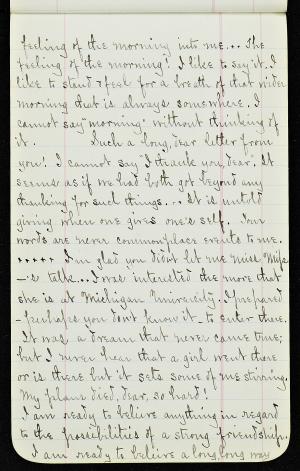 feeling of the morning into me... The
feeling of the morning! I like to say it. I
like to stand & feel for a breath of that wider
morning that is always somewhere. I
cannot say "morning" without thinking of
it. Such a long, dear letter from
you! I cannot say "I thank you, dear." It
seems as if we had both got beyond any
thanking for such things... It is untold
giving when one gives one's self. Your
words are never commonplace events to me.
..... I'm glad you didn't let me miss Miss
—'s talk... I was interested the more that
she is at Michigan University. I prepared
– perhaps you don't know it – to enter there.
It was a dream that never came true;
but I never hear that a girl went there
or is there but it sets some of me stirring.
My plans died, dear, so hard!
I am ready to believe anything in regard
to the possibilities of a strong friendship.
I am ready to believe a long long way